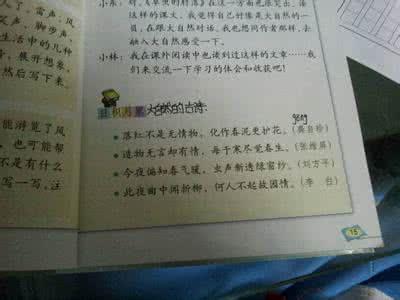 人了，雷声、风
笑声、脚步声，
生活中的几种
音，展开想象，
然后写下来。
可能游览了风
不是有什么
写一写，注
小东：对，《草虫的村落》在这一方面也很突出。读
这样的课文，我觉得自己好像是大自然的一
员，在跟大自然对话。我也想同作者那样，去
融入大自然感受一下。
小林：我在课外阅读中也读到过这样的文章……我
们来交流一下学习的体会和收获吧！
日积月累 大自然的古诗：
gong
落红不是无情物，化作春泥更护花。（龚自珍）
造物无言却有情，每于寒尽觉春生。（张维屏）
今夜偏知春气暖，虫声新透绿窗纱。（刘方平）
此夜曲中闻折柳，何人不起故园情。（李 白）
15